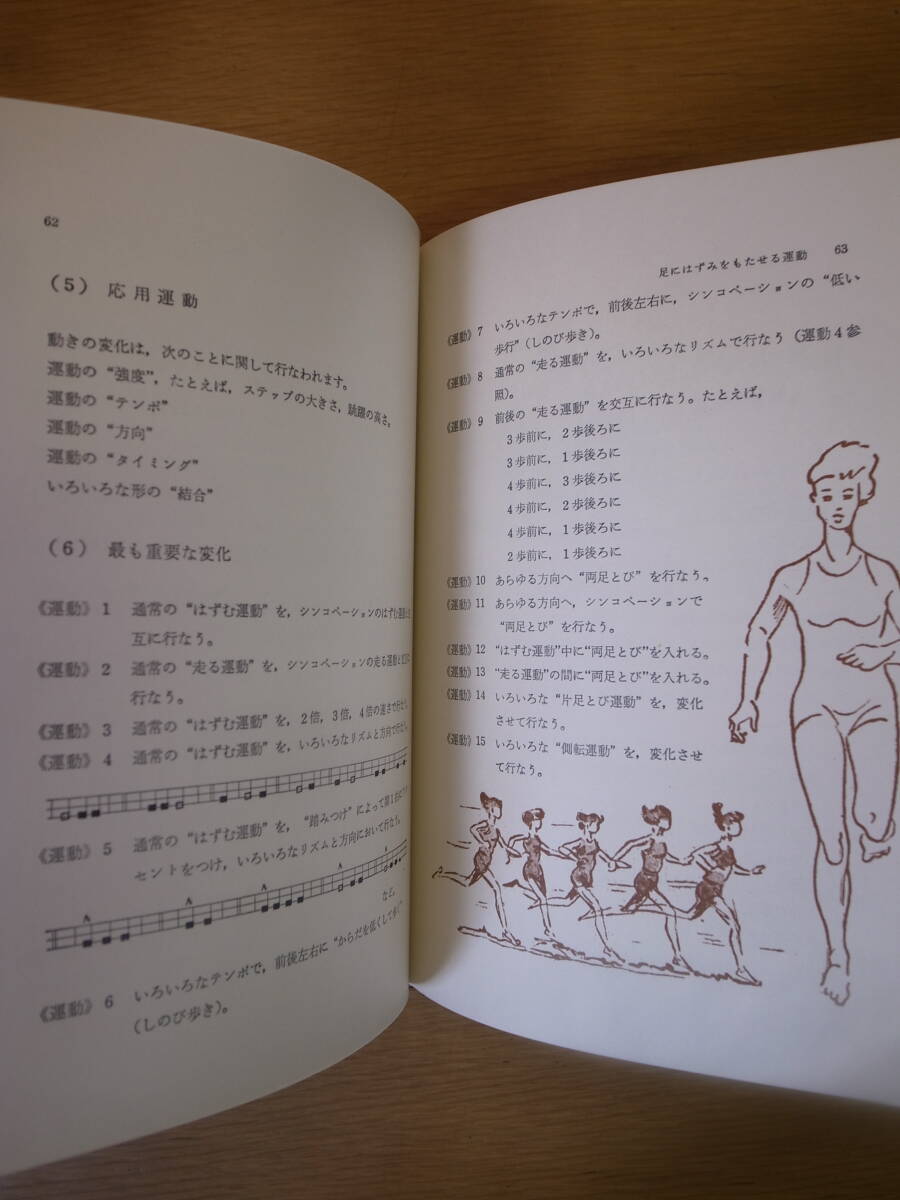 62
(5) 応用運動
動きの変化は，次のことに関して行なわれます。
運動の“強度”，たとえば，ステップの大きさ，跳躍の高さ。
運動の“テンポ”
運動の“方向”
運動の“タイミング”
いろいろな形の“結合”
(6) 最も重要な変化
《運動》 1 通常の“はずむ運動”を，シンコペーションのはずむ運動と
互に行なう。
《運動》 2 通常の“走る運動”を，シンコペーションの走る運動と
行なう。
《運動》 3 通常の“はずむ運動”を，2倍，3倍，4倍の速さで行なう。
《運動》 4 通常の“はずむ運動”を，いろいろなリズムと方向で行なう。
《運動》 5 通常の“はずむ運動”を，“踏みつけ”によって第1拍に
セントをつけ，いろいろなリズムと方向において行なう。
A A A A A
など。
《運動》 6 いろいろなテンポで，前後左右に“からだを低くして歩く”
(しのび歩き)。
足にはずみをもたせる運動 63
《運動》 7 いろいろなテンポで，前後左右に，シンコペーションの“低い
歩行”(しのび歩き)。
《運動》 8 通常の“走る運動”を，いろいろなリズムで行なう(運動4参
照)。
《運動》 9 前後の“走る運動”を交互に行なう。たとえば，
3歩前に，2歩後ろに
3歩前に，1歩後ろに
4歩前に，3歩後ろに
4歩前に，2歩後ろに
4歩前に，1歩後ろに
2歩前に，1歩後ろに
《運動》 10 あらゆる方向へ“両足とび”を行なう。
《運動》 11 あらゆる方向へ，シンコペーションで
“両足とび”を行なう。
《運動》 12 “はずむ運動”中に“両足とび”を入れる。
《運動》 13 “走る運動”の間に“両足とび”を入れる。
《運動》 14 いろいろな“片足とび運動”を，変化
させて行なう。
《運動》 15 いろいろな“側転運動”を，変化させ
て行なう。